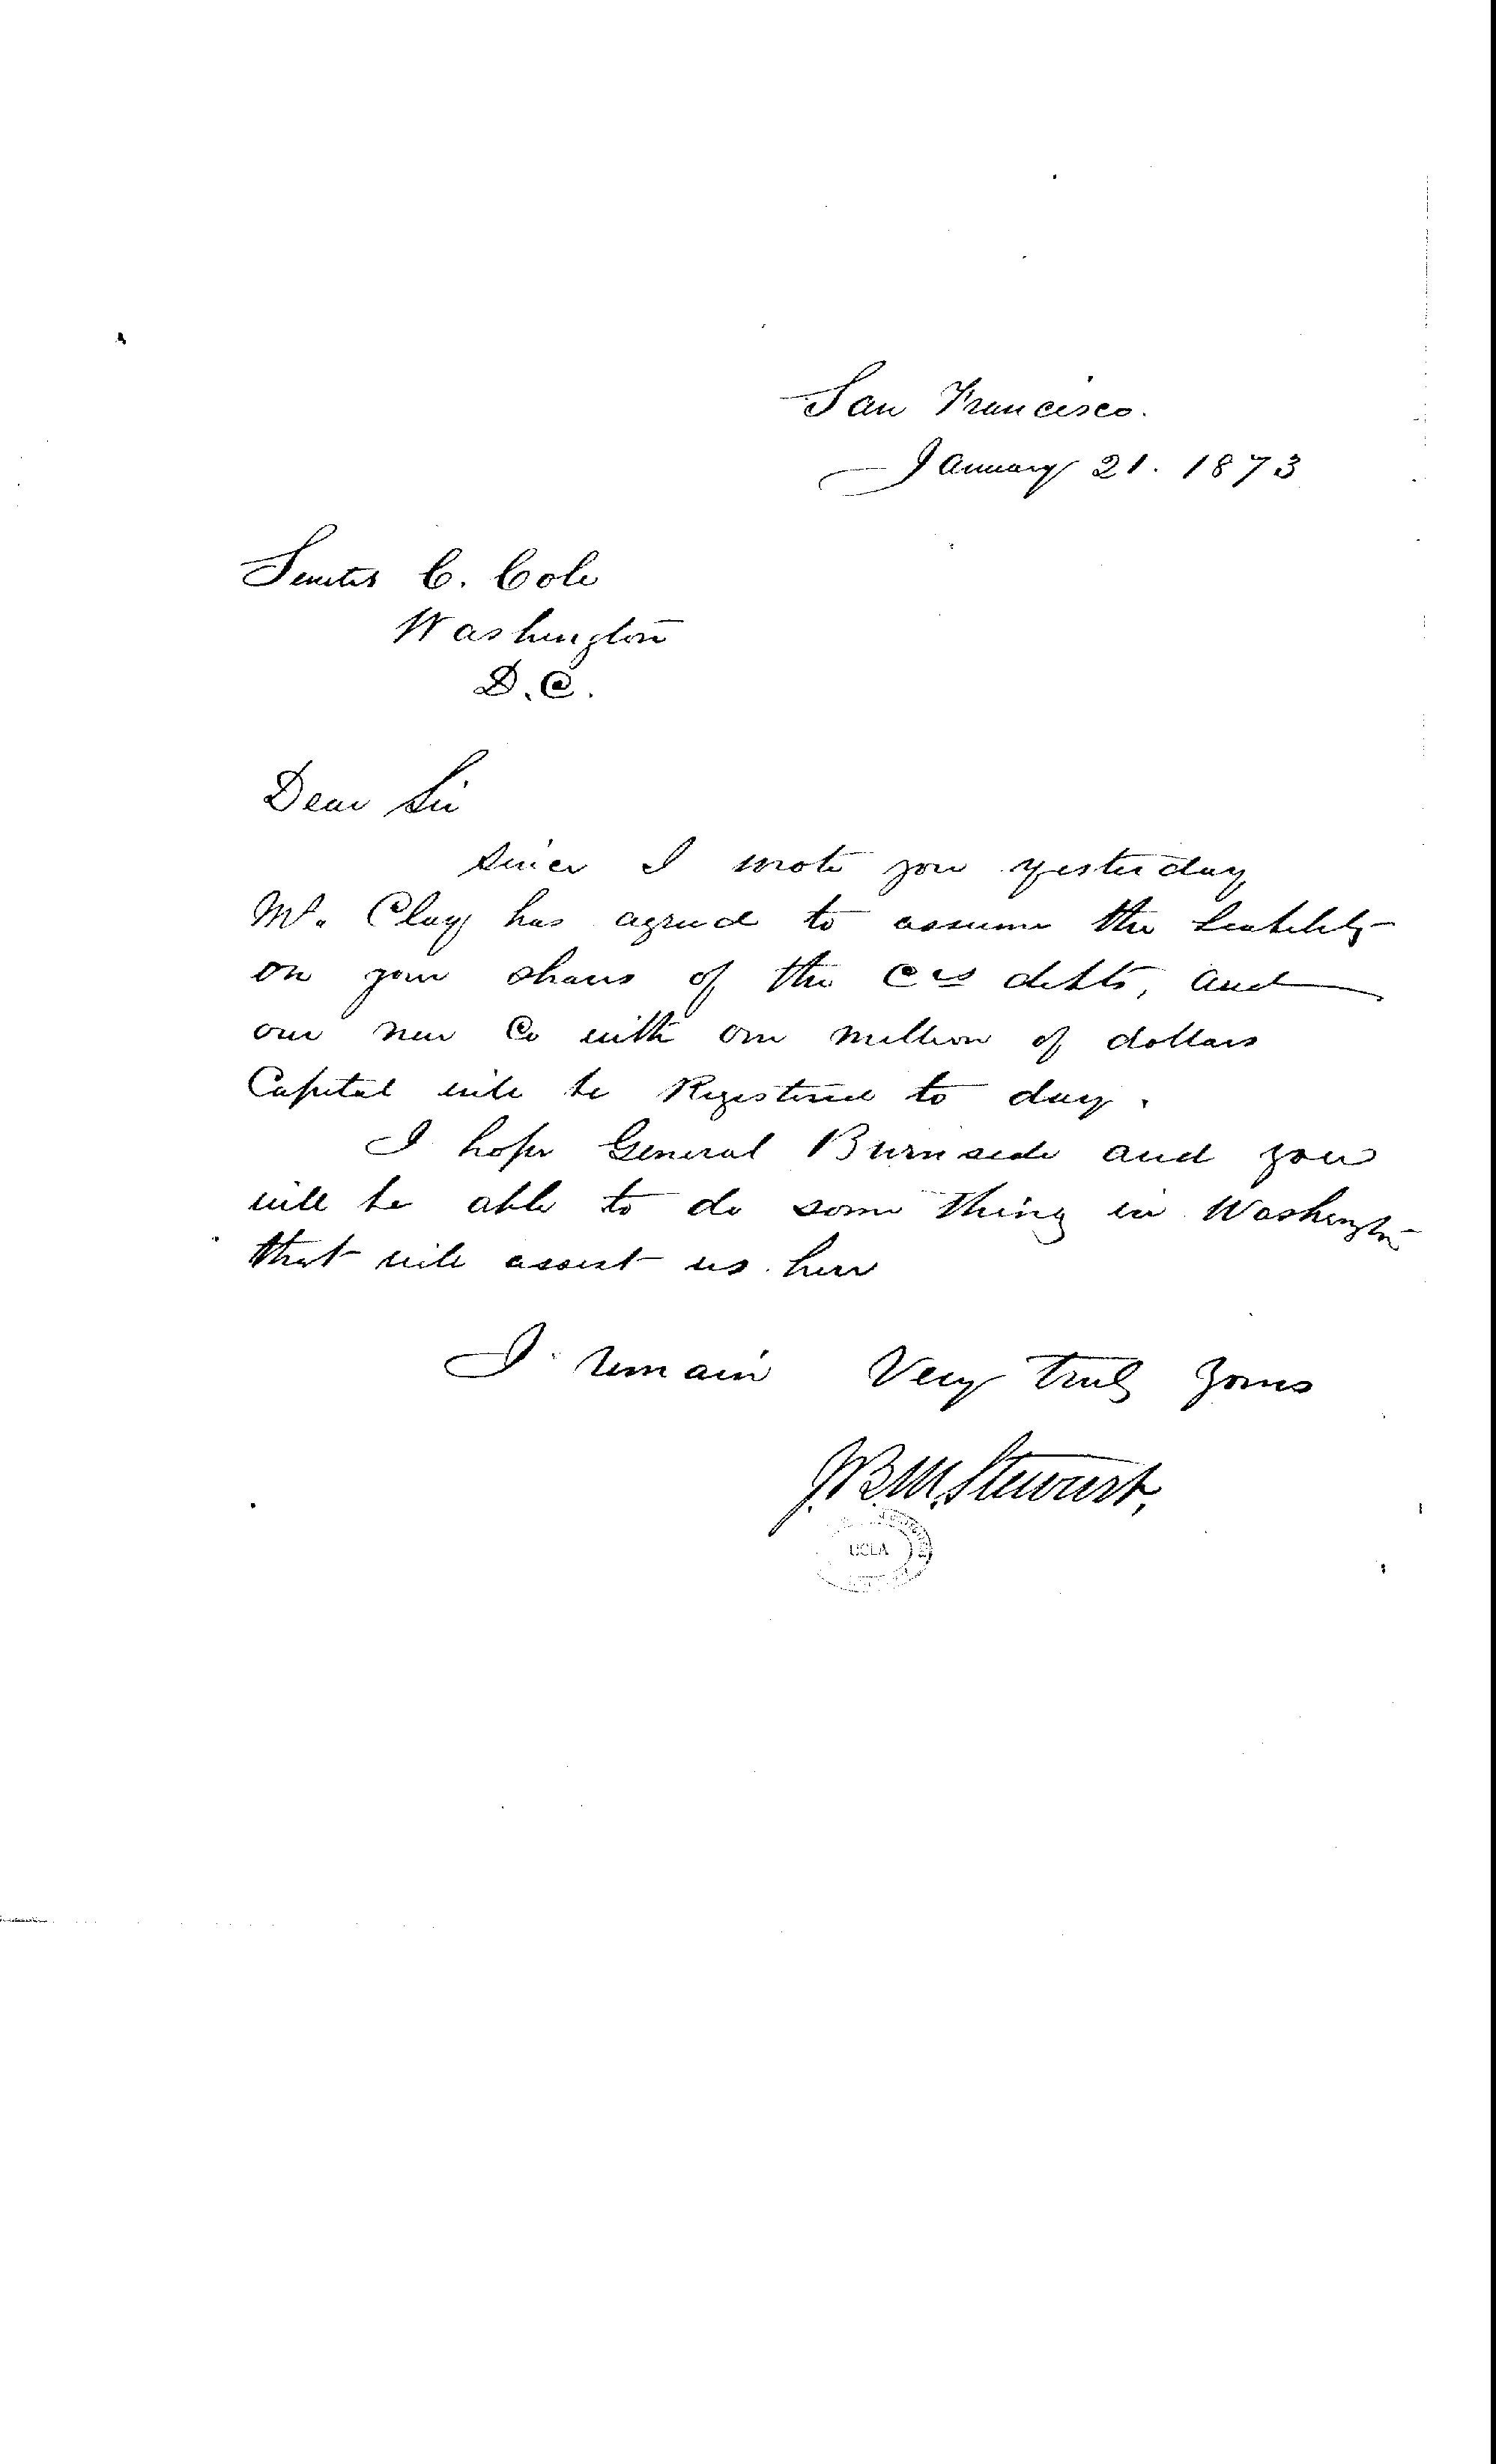 San Francisco.
January 21. 1873
Senator C. Cole
Washington
D.C.
Dear Sir
Since I wrote you yesterday
Mr. Clay has agreed to assume the Liability
on your shares of the Cos debts, and
our new Co with one million of dollars
Capital will be Registered to day.
I hope General Burnside and you
will be able to do some thing in Washington
that will assist us here
I remain Very truly yours
J.B.M. Stewart,
UCLA